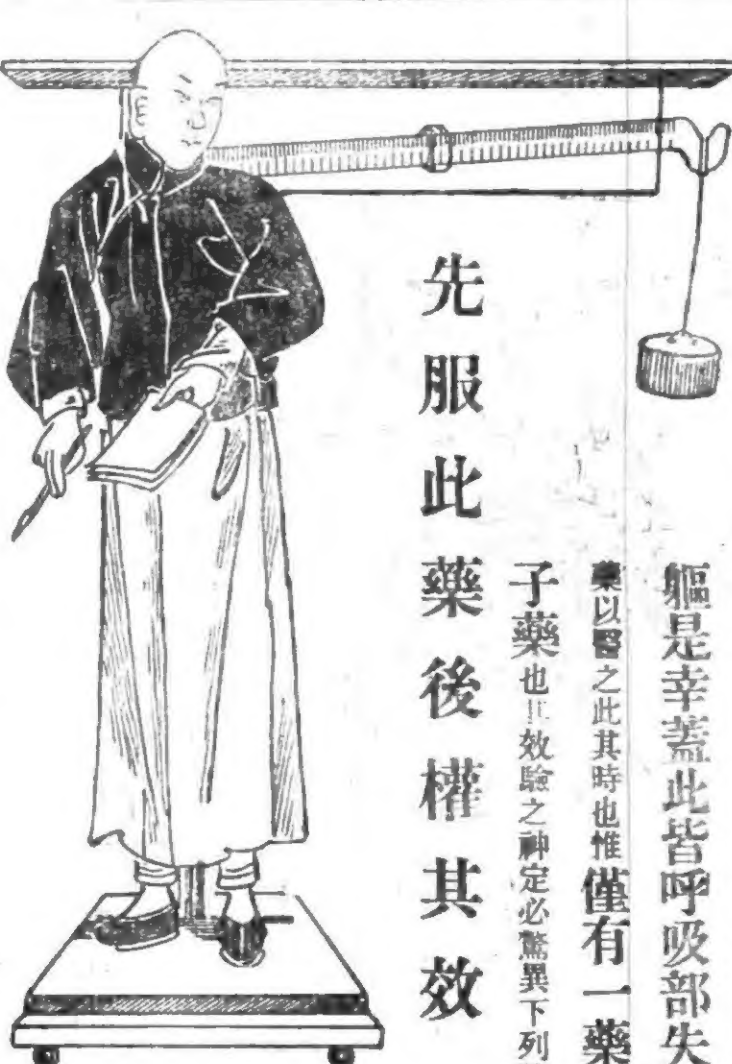 軀是幸蓋此皆呼吸部失
藥以醫之此其時也惟僅有一藥
子藥也其效驗之神定必驚異下列
先服此藥後權其效